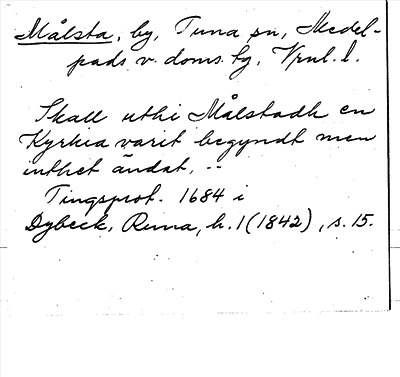 Målsta, by, Tuna sn, Medel-
pads v. doms. hg, Vnl. l.
Skall uthi Målstadh en
Kyrkia varit begyndt men
inthet ändat, --
Tingsprot. 1684 i
Dybeck, Runa, h. 1 (1842), s. 15.